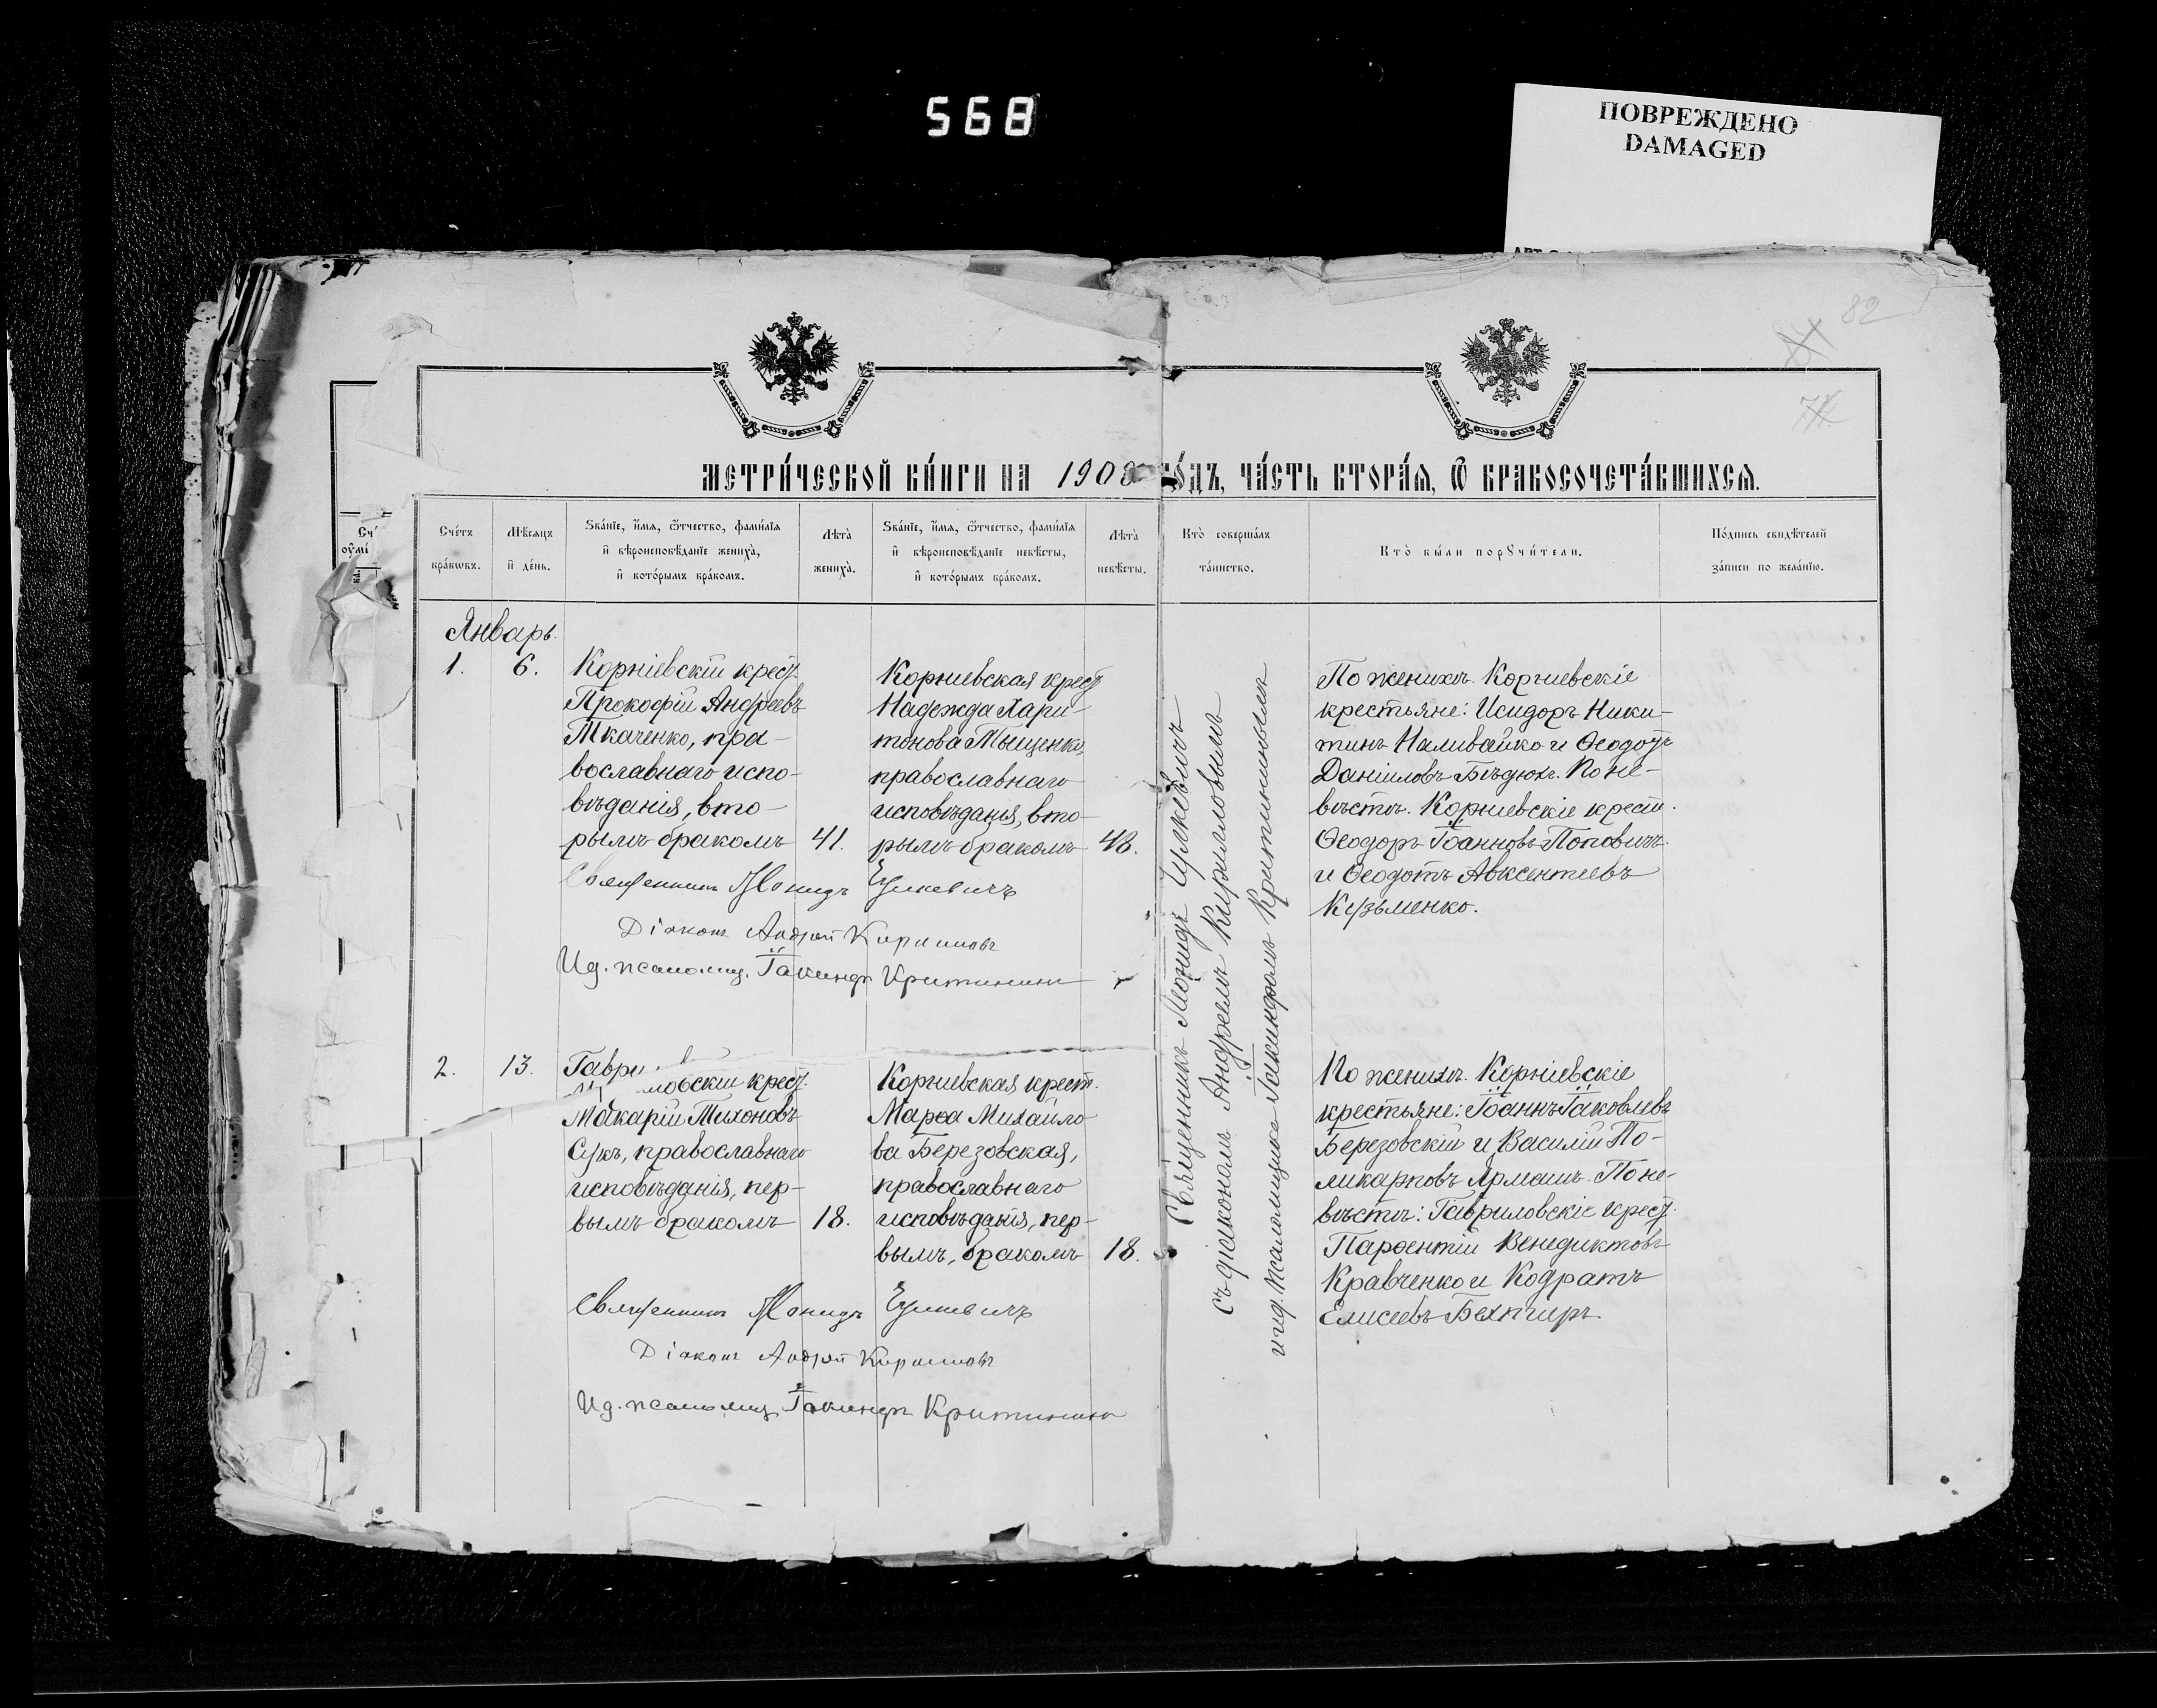 568
ПОВРЕЖДЕНО
DAMAGED
82
МЕТРИ́ЧЕСКОЙ КНИ́ГИ НА 190 ГО́ДЪ, ЧА́СТЬ ВТОРА́Я, Ѿ БРАКОСОЧЕТА́ВШИХСЯ.
Сче́тъ бра́кѡвъ.
Мѣ́сяцъ и҆ де́нь.
Ѕва́нїе, и҆́мѧ, ѻ҆́тчество, фами́лїѧ и҆ вѣроисповѣ́данїе жениха̀, и҆ кото́рымъ бра́комъ.
Лѣ́та жениха̀.
Ѕва́нїе, и҆́мѧ, ѻ҆́тчество, фами́лїѧ и҆ вѣроисповѣ́данїе невѣ́сты, и҆ кото́рымъ бра́комъ.
Лѣ́та невѣ́сты.
Кто̀ соверша́лъ та́инство.
Кто̀ бы́ли порꙋчи́тели.
По́дпись свидѣ́телей за́писи по жела́нїю.
Январь.
1.
6.
Корніевскій крест.
Прокофій Андреевъ
Ткаченко, пра-
вославнаго испо-
вѣданія, вто-
рымъ бракомъ
41.
Корніевская крест
Надежда Хари-
тонова Мыценко,
православнаго
исповѣданія, вто-
рымъ бракомъ
43.
Священникъ Леонидъ Цулкевичъ
Съ діакономъ Андреемъ Кирилловымъ
и и.д. псаломщика Іакинѳомъ Критининымъ
По женихѣ. Корніевскіе
крестьяне: Исидоръ Ники-
тинъ Наливайко и Ѳеодотъ
Даніиловъ Бѣдюхъ. По не-
вѣстѣ. Корніевскіе крест.
Ѳеодоръ Іоанновъ Поповичъ
и Ѳеодотъ Авксентіевъ
Кузьменко.
Священникъ Леонидъ Цулкевичъ
Діаконъ Андрей Кирилловъ
И.д. псаломщ. Іакинѳъ Критининъ
2.
13.
Гаври
ловскій крест.
Макарій Тихоновъ
Сукъ, православнаго
исповѣданія, пер-
вымъ бракомъ
18.
Корніевская крест.
Марѳа Михайло-
ва Березовская,
православнаго
исповѣданія, пер-
вымъ, бракомъ
18.
По женихѣ. Корніевскіе
крестьяне: Іоаннъ Іаковлевъ
Березовскій и Василій По-
ликарповъ Ярмашъ. По не-
вѣстѣ: Гавриловскіе крест.
Парѳентій Венедиктовъ
Кравченко и Кодратъ
Елисеевъ Бехтиръ.
Священникъ Леонидъ Цулкевичъ
Діаконъ Андрей Кирилловъ
И.д. псаломщ. Іакинѳъ Критининъ